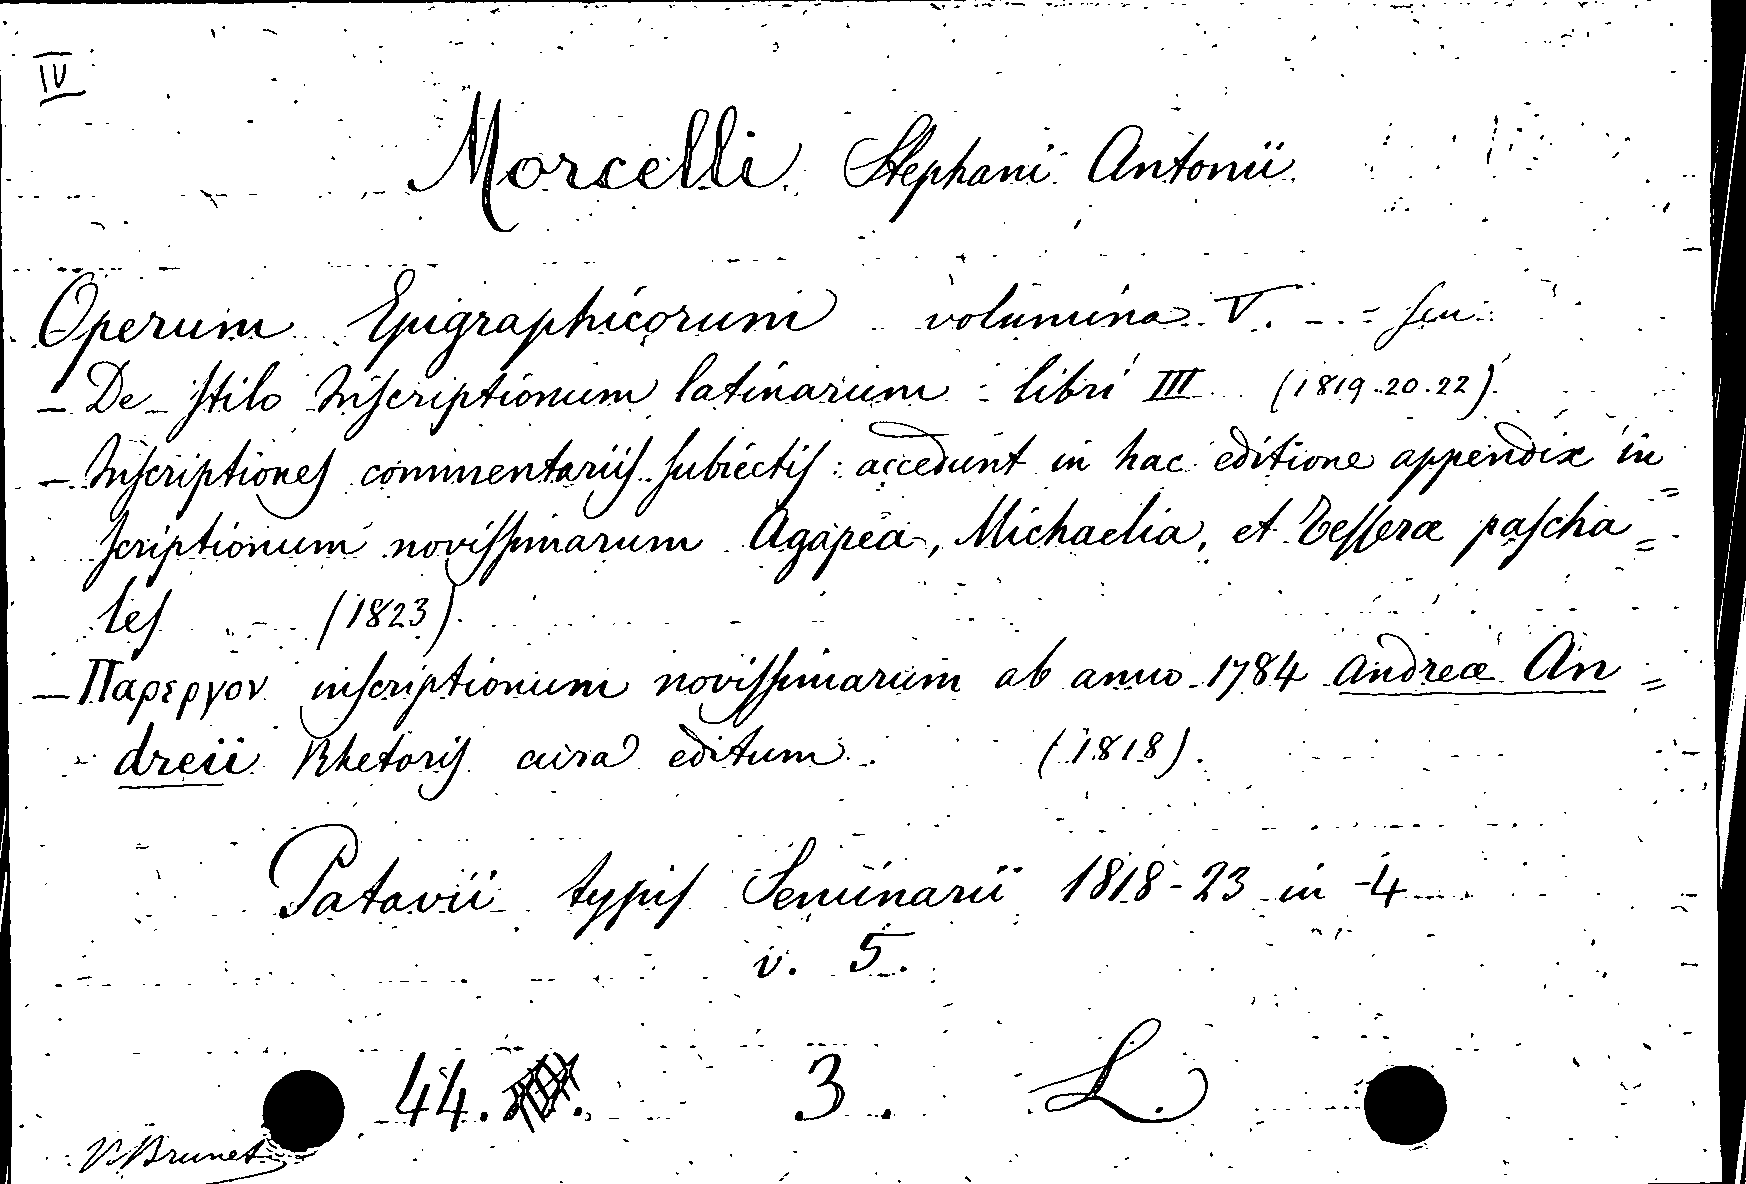 IV
Morcelli Stephani Antonii
Operum Epigraphicorum volumina V. - = seu
- De stilo Inscriptionum latinarum libri III (1819.20.22).
- Inscriptiones commentariis subiectis: accedunt in hac editione appendix in=
scriptionum novissimarum Agapea, Michaelia, et Tesseræ pascha=
les (1823).
- Παρεργον inscriptionum novissimarum ab anno 1784 Andreæ An=
dreii Rhetoris cura editum. (1818).
Patavii typis Seminarii 1818-23 in -4
v. 5.
44. 3. L.
V. Brunet